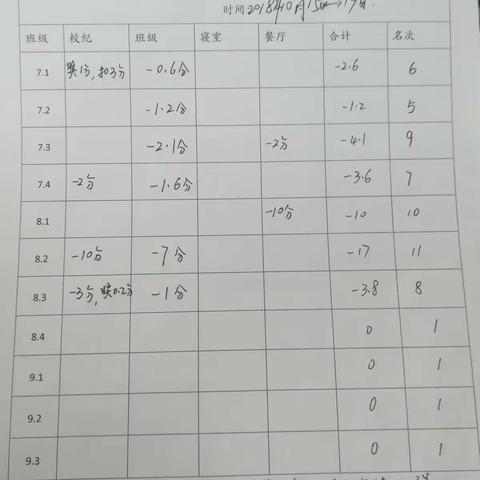 时间2018年10月15日—19日.
班级 校纪 班级 寝室 餐厅 合计 名次
7.1 奖1分,扣3分 -0.6分 -2.6 6
7.2 -1.2分 -1.2 5
7.3 -2.1分 -2分 -4.1 9
7.4 -2分 -1.6分 -3.6 7
8.1 -10分 -10 10
8.2 -10分 -7分 -17 11
8.3 -3分,奖0.2分 -1分 -3.8 8
8.4 0 1
9.1 0 1
9.2 0 1
9.3 0 1